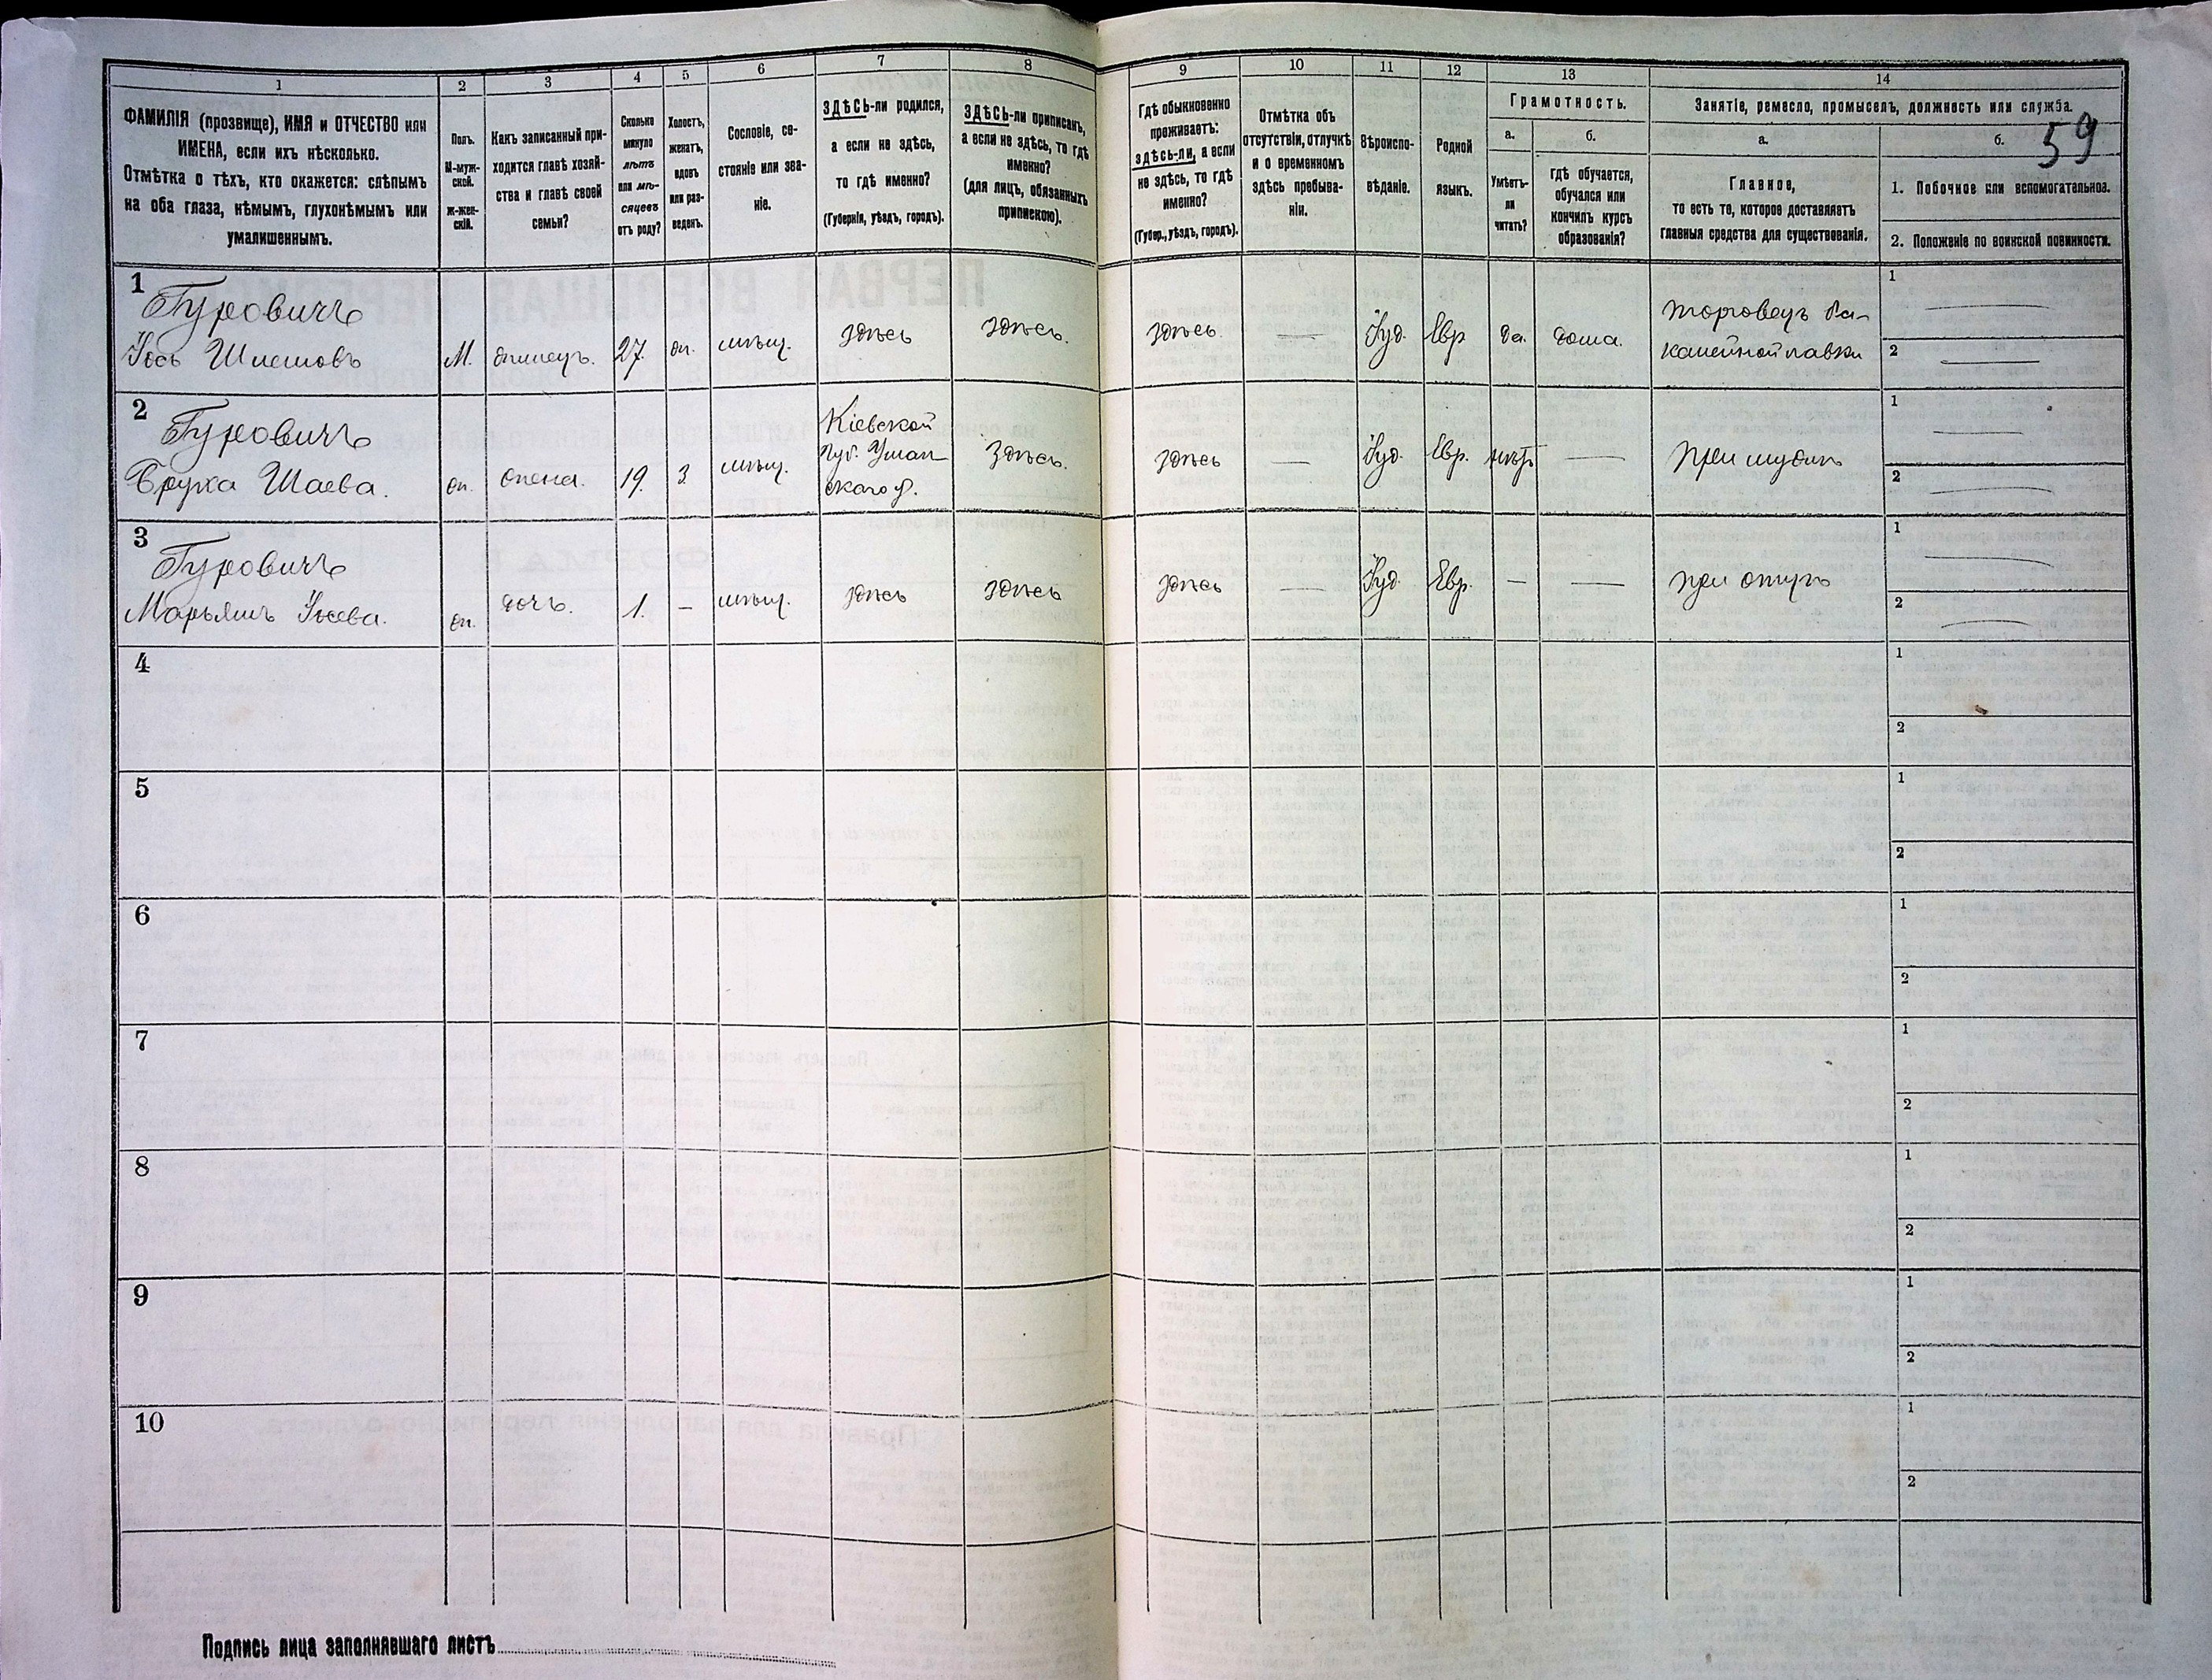 1
2
3
4
5
6
7
8
9
10
11
12
13
14
59
ФАМИЛІЯ (прозвище), ИМЯ и ОТЧЕСТВО или
ИМЕНА, если ихъ нѣсколько.
Отмѣтка о тѣхъ, кто окажется: слѣпымъ
на оба глаза, нѣмымъ, глухонѣмымъ или
умалишеннымъ.
Полъ.
М-муж-
ской.
Ж-жен-
скій.
Какъ записанный при-
ходится главѣ хозяй-
ства и главѣ своей
семьи?
Сколько
минуло
лѣтъ
или мѣ-
сяцевъ
отъ роду?
Холостъ,
женатъ,
вдовъ
или раз-
веденъ.
Сословіе, со-
стояніе или зва-
ніе.
ЗДѢСЬ-ли родился,
а если не здѣсь,
то гдѣ именно?
(Губернія, уѣздъ, городъ).
ЗДѢСЬ-ли приписанъ,
а если не здѣсь, то гдѣ
именно?
(для лицъ, обязанныхъ
припискою).
Гдѣ обыкновенно
проживаетъ:
здѣсь-ли, а если
не здѣсь, то гдѣ
именно?
(Губер., уѣздъ, городъ).
Отмѣтка объ
отсутствіи, отлучкѣ
и о временномъ
здѣсь пребыва-
ніи.
Вѣроиспо-
вѣданіе.
Родной
языкъ.
Грамотность.
а.
Умѣетъ-
ли
читать?
б.
гдѣ обучается,
обучался или
кончилъ курсъ
образованія?
Занятіе, ремесло, промыселъ, должность или служба.
а.
Главное,
то есть то, которое доставляетъ
главныя средства для существованія.
б.
1. Побочное или вспомогательное.
2. Положеніе по воинской повинности.
1
Гуровичъ
Іось Шлемовъ
М. хозяинъ. 27. ж. мѣщ. здѣсь здѣсь. здѣсь. — Іуд. Евр да. дома.
торговецъ ба-
калейной лавки
1 —
2 —
2
Гуровичъ
Брука Шаева.
ж. жена. 19. З мѣщ.
Кіевской
губ. Уман-
скаго у.
здѣсь. здѣсь — Іуд. Евр. нѣтъ —
при мужѣ
1 —
2 —
3
Гуровичъ
Марьямъ Іосева.
ж. дочь. 1. — мѣщ. здѣсь здѣсь здѣсь — Іуд. Евр. — —
при отцѣ
1 —
2 —
4
1
2
5
1
2
6
1
2
7
1
2
8
1
2
9
1
2
10
1
2
Подпись лица заполнявшаго листъ